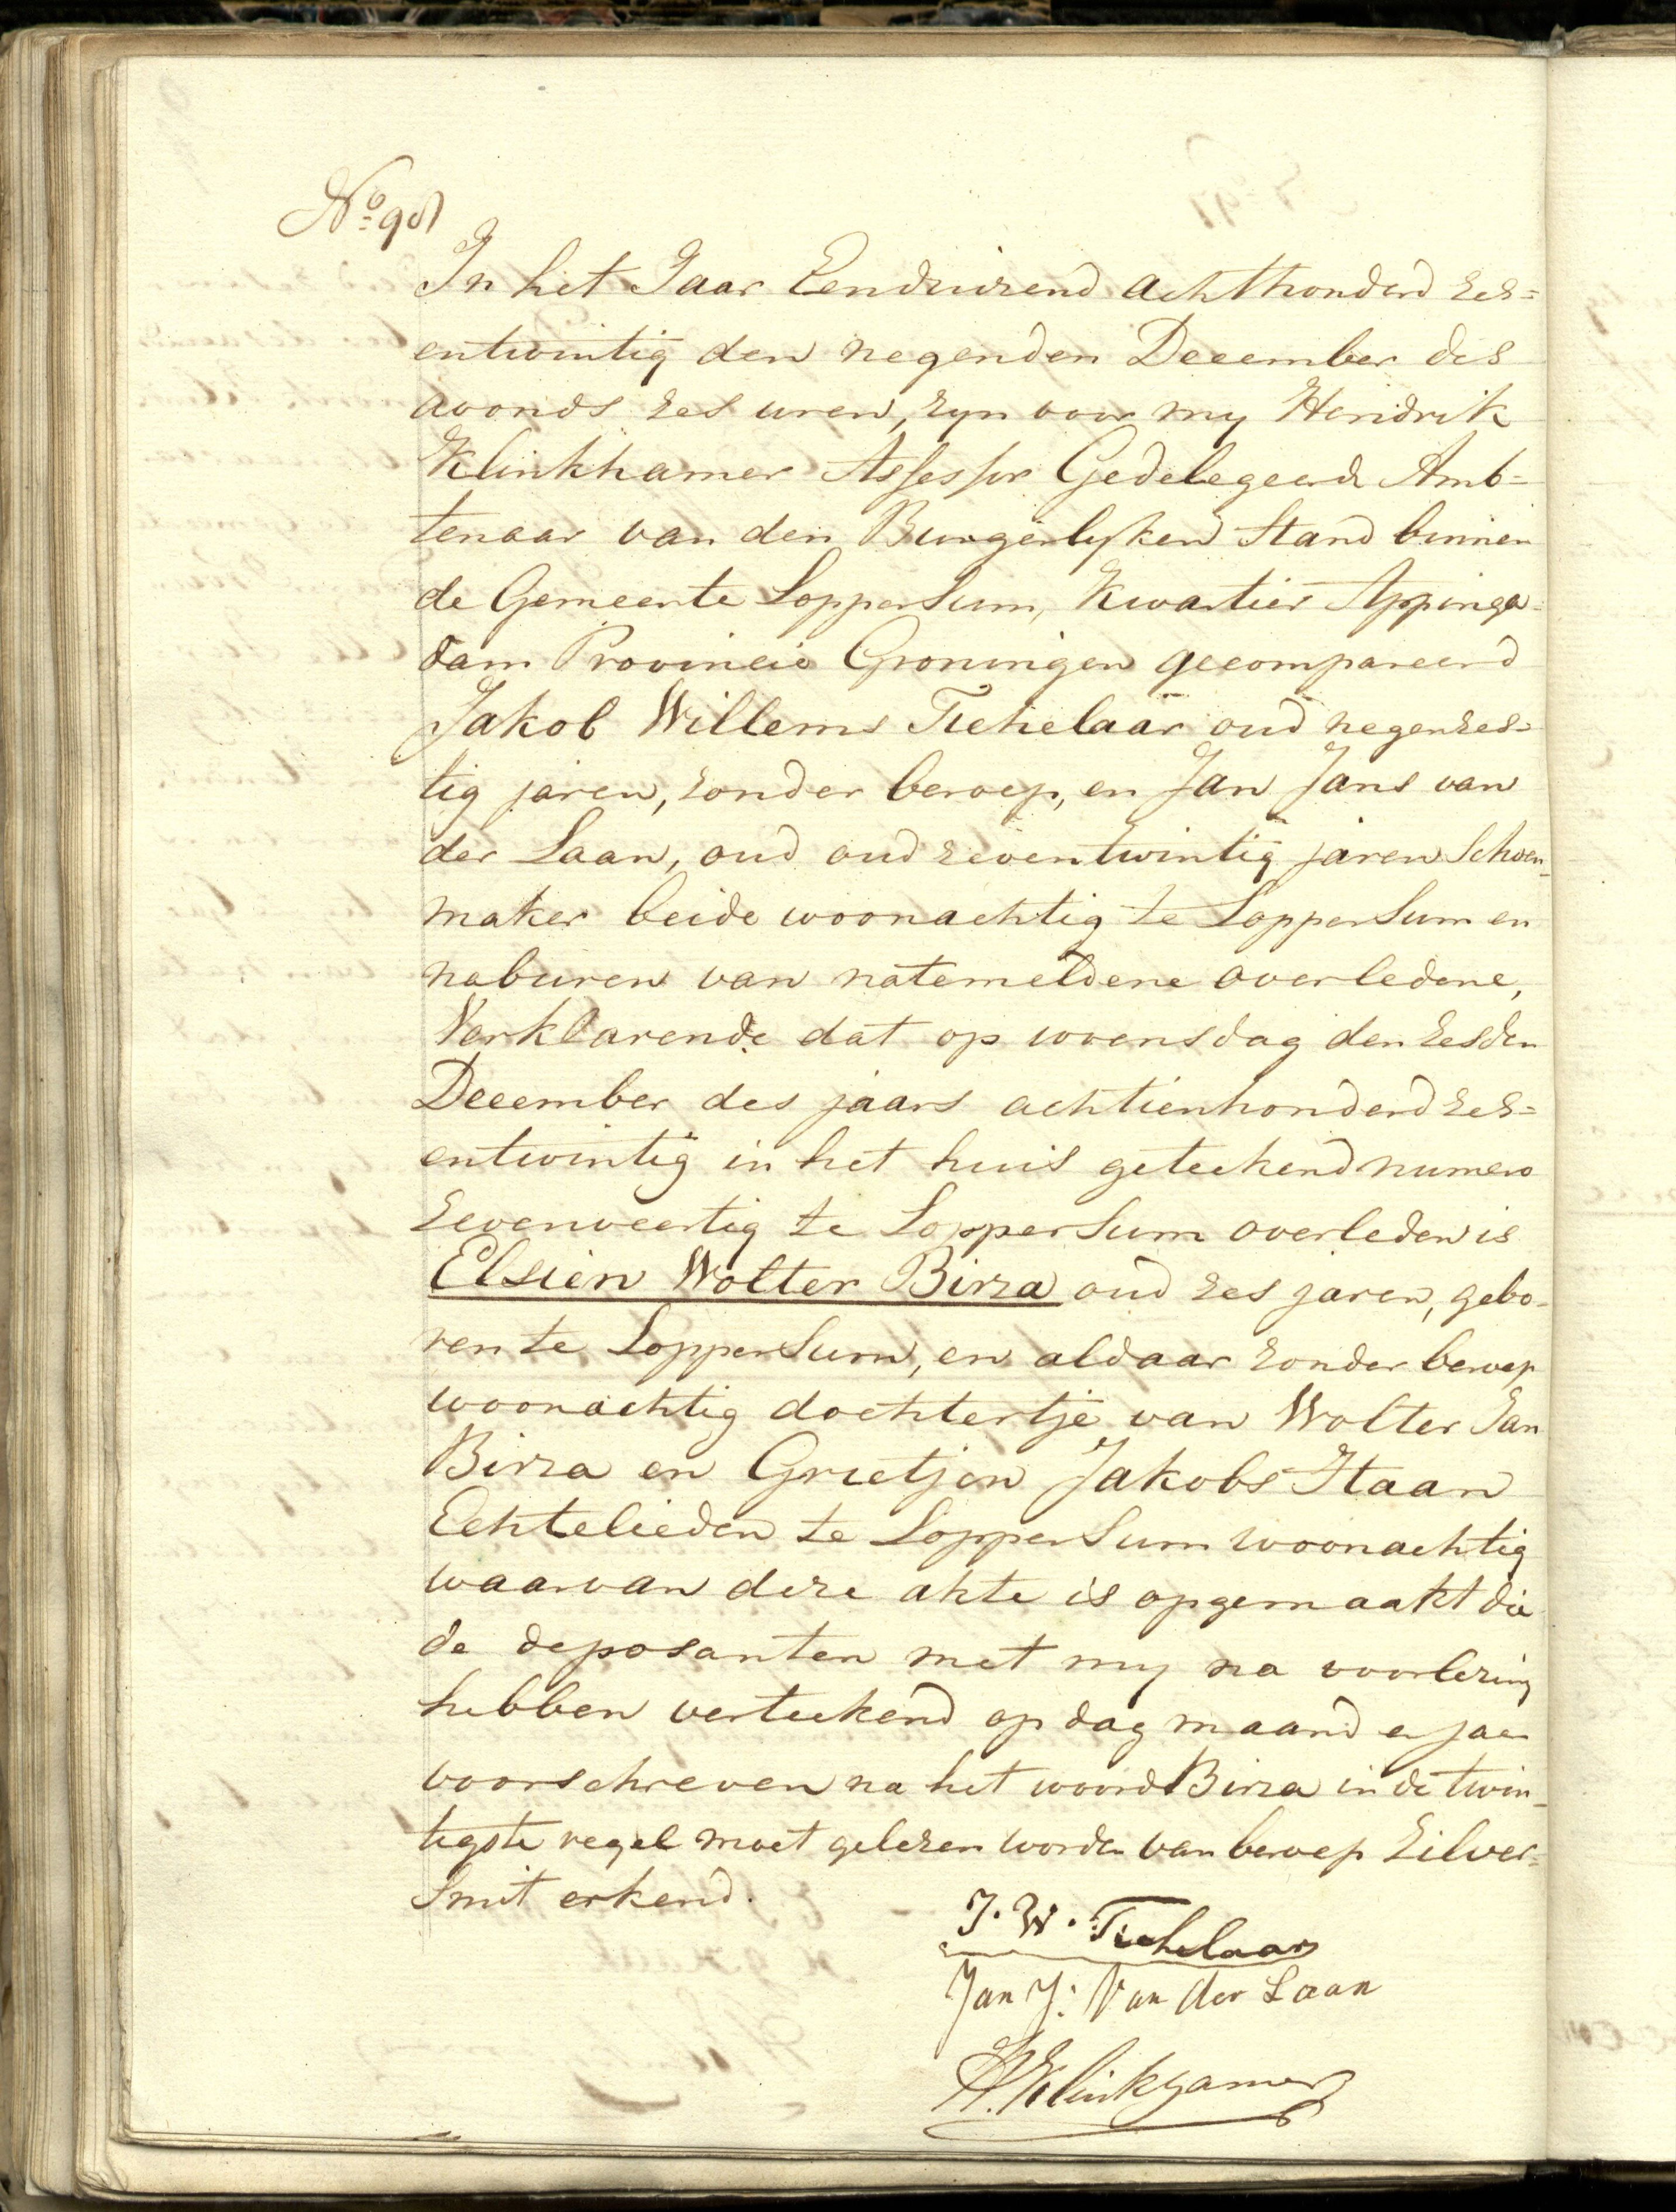 No 98
In het Jaar Eenduizend achthonderd zes=
entwintig den negenden December des
avonds zes uren, zyn voor my Hendrik
Klinkhamer Assessor Gedelegeerde Amb=
tenaar van den Burgerlyken Stand binnen
de Gemeente Loppersum, Kwartier Appinga=
dam Provincie Groningen gecompareerd
Jakob Willems Tichelaar oud negenzes=
tig jaren, zonder beroep, en Jan Jans van
der Laan, oud oud zeventwintig jaren Schoen=
maker beide woonachtig te Loppersum en
naburen van natemeldene overledene,
Verklarende dat op woensdag den zesden
December des jaars achtienhonderd zes=
entwintig in het huis geteekend numero
zevenveertig te Loppersum overleden is
Elsien Wolter Birza oud zes jaren, gebo=
ren te Loppersum, en aldaar zonder beroep
woonachtig dochtertje van Wolter Jan
Birza en Grietjen Jakobs Haan
Echtelieden te Loppersum woonachtig
waarvan deze akte is opgemaakt die
de deposanten met my na voorlezing
hebben verteekend op dag maand en jaar
voorschreven na het woord Birza in de twin=
tigste regel moet gelezen worden van beroep Zilver=
smit erkend.
J. W. Tichelaar
Jan J: Van der Laan
H. Klinkhamer